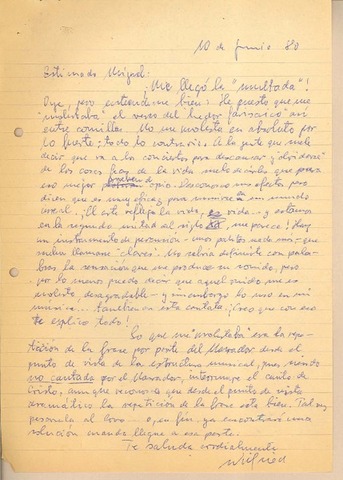 10 de junio 80
Estimado Miguel:
¡Me llegó la "multada"!
Oye, pero entendeme bien: He puesto que me
"molestaba" el verso del hedor farisaico así
entre comillas. No me molesta en absoluto por
lo fuerte; todo lo contrario. A la gente que me
decir que va a los conciertos para descansar y "olvidarse"
de las cosas feas de la vida suelo decirles que para
eso mejor opio. Desconozco sus efectos pero
dicen que es muy eficaz para un mundo
irreal. ¡El arte refleja la vida, vida - y estamos
en la segunda mitad del siglo XX, me parece! Hay
un instrumento de percusión - unos palitos de madera - que
suelen llamarse "claves". No sabría definirte con pala-
bras la sensación que me produce su sonido, pero
por lo menos puedo decir que aquel sonido me es
molesto, desagradable - y sin embargo lo uso en mi
música... también en esta cantata. ¡Creo que con eso
te explico todo!
Lo que me "molestaba" era la repe-
tición de la frase por parte del Narrador desde el
punto de vista de la estructura musical, pues siendo
no cantada por el Narrador, interrumpe el canto de
Cristo, aunque reconozco que desde el punto de vista
dramático la repetición de la frase está bien. Tal vez
pasarla al Coro - en fin, ya encontraré una
solución cuando llegue a esa parte.
Te saluda cordialmente
Wilfried